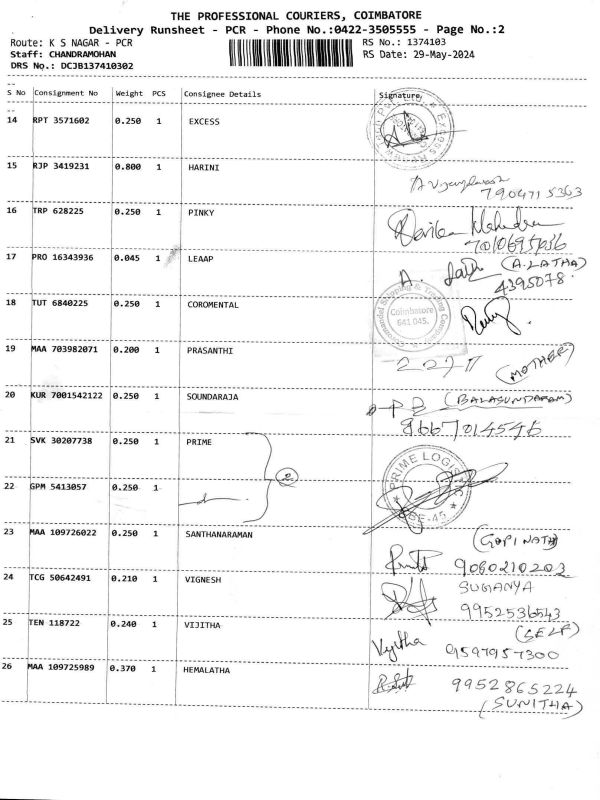 THE PROFESSIONAL COURIERS, COIMBATORE
Delivery Runsheet - PCR - Phone No.:0422-3505555 - Page No.:2
Route: K S NAGAR - PCR RS No.: 1374103
Staff: CHANDRAMOHAN RS Date: 29-May-2024
DRS No.: DCJB137410302
S No Consignment No Weight PCS Consignee Details Signature
14 RPT 3571602 0.250 1 EXCESS
15 RJP 3419231 0.800 1 HARINI
7904715363
16 TRP 628225 0.250 1 PINKY
17 PRO 16343936 0.045 1 LEAAP A. Latha (A.LATHA)
4395078
18 TUT 6840225 0.250 1 COROMENTAL
Coimbatore
641 045.
19 MAA 703982071 0.200 1 PRASANTHI
(MOTHER)
20 KUR 7001542122 0.250 1 SOUNDARAJA (BALASUNDARAM)
9667014546
21 SVK 30207738 0.250 1 PRIME
PRIME LOGIS
22 GPM 5413057 0.250 1
BE-45
23 MAA 109726022 0.250 1 SANTHANARAMAN (GOPINATH)
9080210203
24 TCG 50642491 0.210 1 VIGNESH SUGANYA
9952536543
25 TEN 118722 0.240 1 VIJITHA (SELF)
Vijitha 9597957300
26 MAA 109725989 0.370 1 HEMALATHA
9952865224
(SUNITHA)